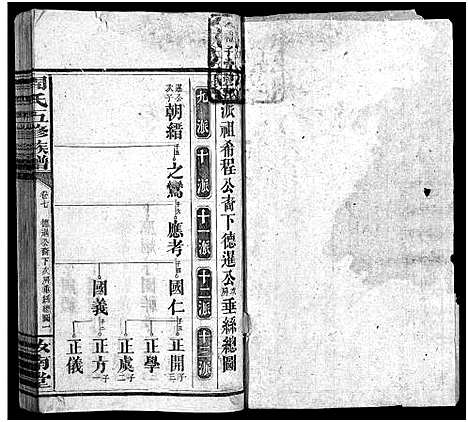 派祖希程公裔下德暹公次房垂絲總圖
九派 十派 十一派 十二派 十三派
暹公次子 朝縉
之鸞
應考
國仁
正開 子三
正學
正虞 子二
國義
正方 子一
正儀
氏五修族譜
卷七 德暹公裔下次房垂絲總圖 一
堂